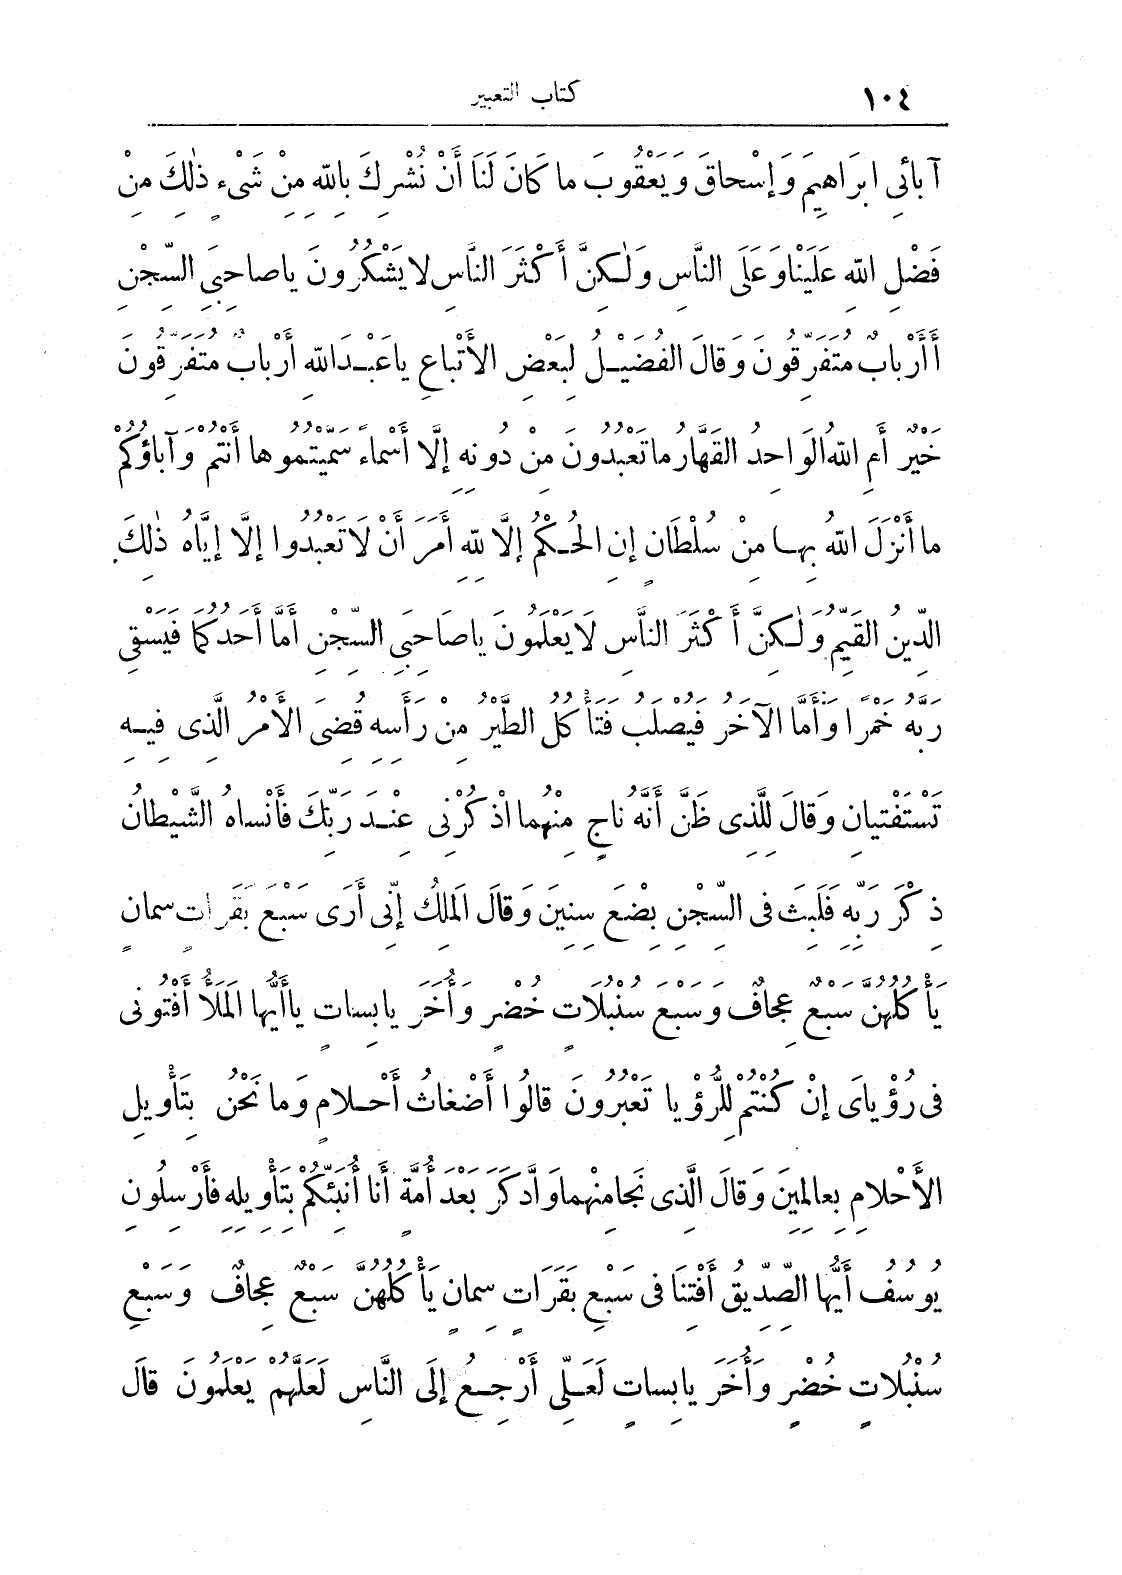 ١٠٤ كتاب التعبير
آبائي ابرَاهِيمَ وَإسْحاقَ وَيَعْقُوبَ ما كَانَ لَنَا أَنْ نُشْرِكَ بِاللهِ مِنْ شَىْءٍ ذٰلِكَ مِنْ
فَضْلِ اللهِ عَلَيْنا وَعَلَى النَّاسِ وَلٰـكِنَّ أَكْثَرَ النَّاسِ لا يَشْكُرُونَ ياصاحِبَىِ السِّجْنِ
أَأَرْبابٌ مُتَفَرِّقُونَ وَقالَ الفُضَيْـلُ لِبَعْضِ الأَتْباعِ ياعَبْـدَ اللهِ أَرْبابٌ مُتَفَرِّقُونَ
خَيْرٌ أَمِ اللهُ الوَاحِدُ القَهَّارُ ما تَعْبُدُونَ مِنْ دُونِهِ إِلَّا أَسْماءً سَمَّيْتُمُوها أَنْتُمْ وَآباؤُكُمْ
ما أَنْزَلَ اللهُ بِهـا مِنْ سُلْطَانٍ إِنِ الحُـكْمُ إِلَّا لِلهِ أَمَرَ أَنْ لَا تَعْبُدُوا إِلَّا إِيَّاهُ ذٰلِكَ
الدِّينُ القَيِّمُ وَلٰـكِنَّ أَكْثَرَ النَّاسِ لَا يَعْلَمُونَ ياصَاحِبَىِ السِّجْنِ أَمَّا أَحَدُكُما فَيَسْقِى
رَبَّهُ خَمْرًا وَأَمَّا الآخَرُ فَيُصْلَبُ فَتَأْكُلُ الطَّيْرُ مِنْ رَأسِهِ قُضِىَ الأَمْرُ الَّذِى فِيـهِ
تَسْتَفْتِيانِ وَقالَ لِلَّذِى ظَنَّ أَنَّهُ ناجٍ مِنْهُما اذْكُرْنِى عِنْـدَ رَبِّكَ فَأَنْساهُ الشَّيْطانُ
ذِكْرَ رَبِّهِ فَلَبِثَ فى السِّجْنِ بِضْعَ سِنِينَ وَقالَ المَلِكُ إِنِّى أَرَى سَبْعَ بَقَرَاتٍ سِمانٍ
يَأْكُلُهُنَّ سَبْعٌ عِجافٌ وَسَبْعَ سُنْبُلَاتٍ خُضْرٍ وَأُخَرَ يابِساتٍ ياأَيُّها المَلَأُ أَفْتُونِى
فى رُؤْياىَ إِنْ كُنْتُمْ لِلرُّؤْيا تَعْبُرُونَ قالُوا أَضْغاثُ أَحْـلامٍ وَما نَحْنُ بِتَأْوِيلِ
الأَحْلامِ بِعالِمِينَ وَقالَ الَّذِى نَجا مِنْهما وَادَّكَرَ بَعْدَ أُمَّةٍ أَنا أُنَبِّئُكُمْ بِتَأْوِيلِهِ فَأَرْسِلُونِ
يُوسُفُ أَيُّها الصِّدِّيقُ أَفْتِنَا فى سَبْعِ بَقَرَاتٍ سِمانٍ يَأْكُلُهُنَّ سَبْعٌ عِجافٌ وَسَبْعِ
سُنْبُلاتٍ خُضْرٍ وَأُخَرَ يابِساتٍ لَعَـلِّى أَرْجِـعُ إِلَى النَّاسِ لَعَلَّهُمْ يَعْلَمُونَ قالَ